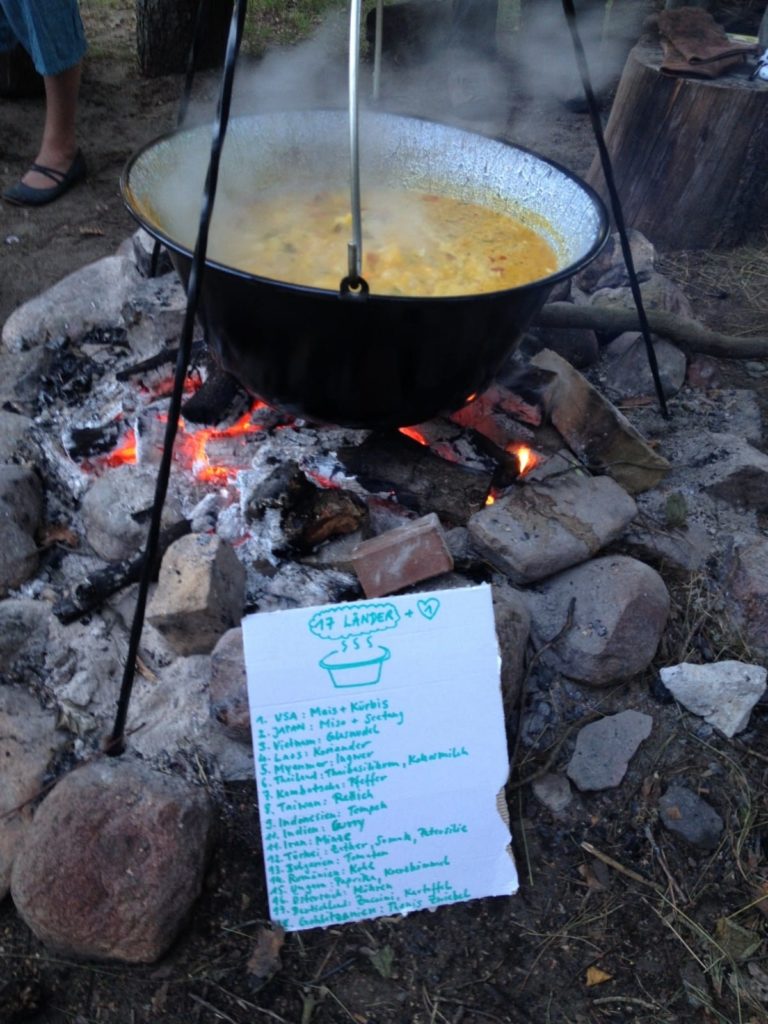 17 LÄNDER + 1
1. USA: Mais + Kürbis
2. JAPAN: Miso +
3. Vietnam: Glasnudel
4. Laos: Koriander
5. Myanmar: Ingwer
6. Thailand: Thaibasilikum, Kokosmilch
7. Kambotscha: Pfeffer
8. Taiwan: Rettich
9. Indonesien: Tempeh
10. Indien: Curry
11. Iran: Minze
12. Türkei: Sumak, Petersilie
13. Bulgarien: Tomaten
14. Rumänien: Kohl
15. Ungarn: Paprika,
16. Österreich: Möhren
17. Deutschland: Zucchini, Kartoffel
Zwiebel